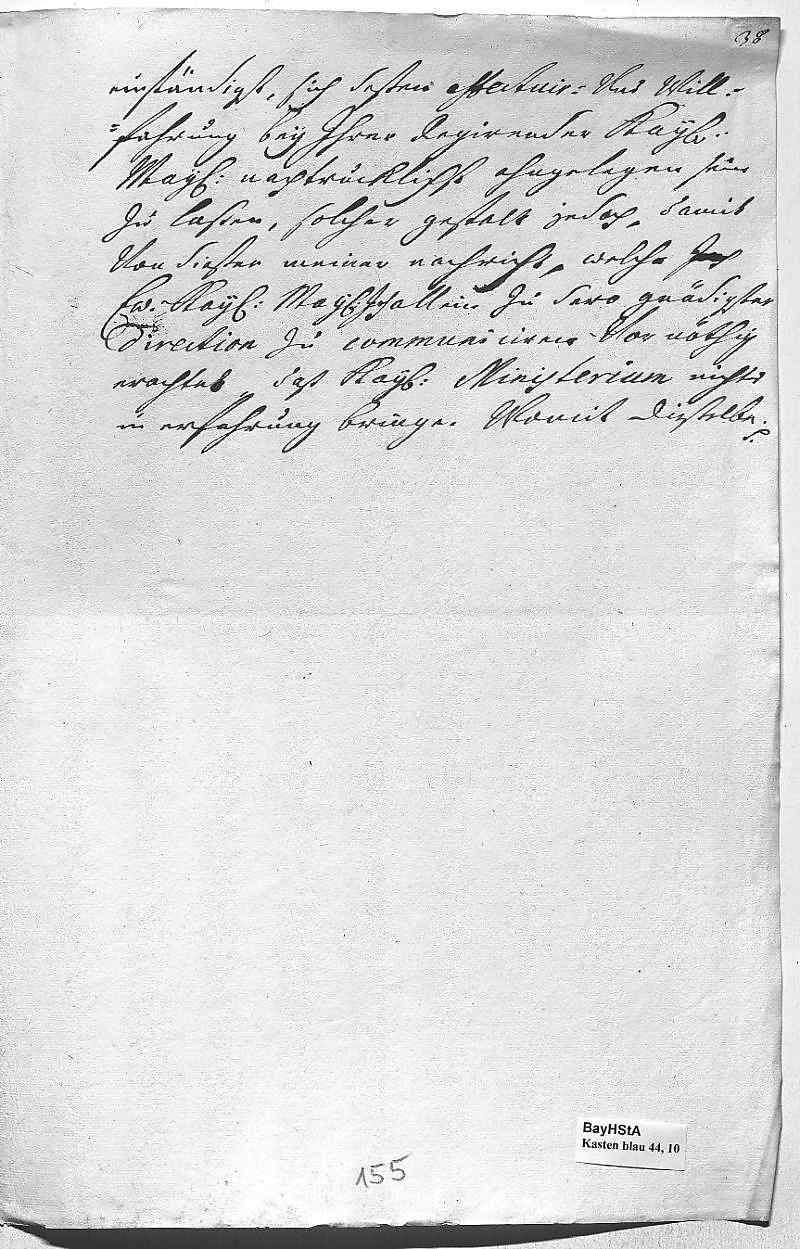 38
inständigst, sich deßen effectuir- Und Will-
-fahrung bey Ihrer Regirender Kayl:
Mayt: nachtrücklichst angelegen seyn
zu laßen, solcher gestalt jedoch, damit
Von dießer meiner nachricht, welche
Ew. Kayl: Mayt: allein zu dero gnädigster
Direction zu communiciren Vor nöthig
erachtet, das Kayl: Ministerium nichts
in erfahrung bringe. Womit Dieselbe
155
BayHStA
Kasten blau 44, 10